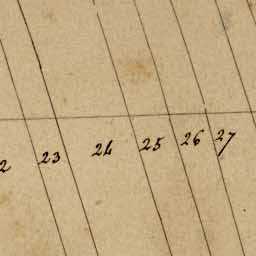 23 24 25 26 27